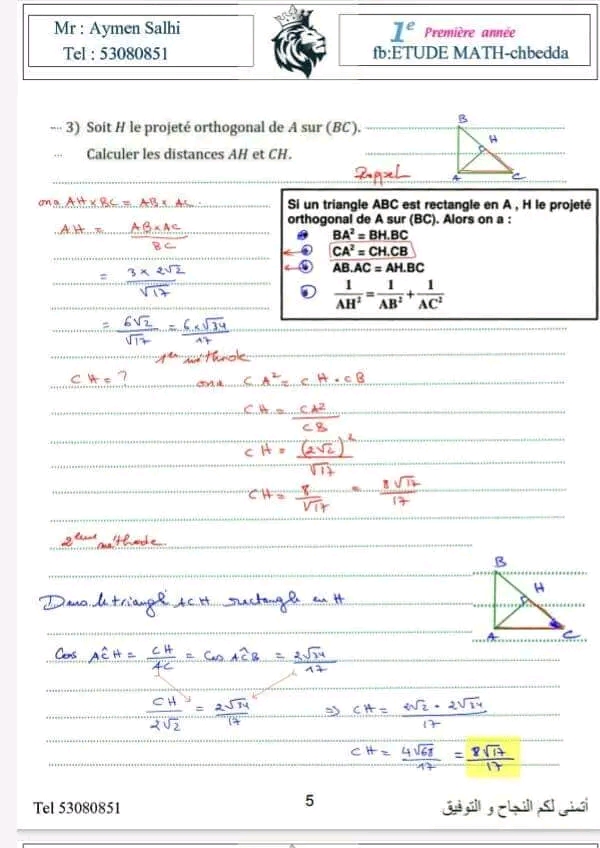 Mr : Aymen Salhi
Tel : 53080851
1e Première année
fb:ETUDE MATH-chbedda
3) Soit H le projeté orthogonal de A sur (BC).
Calculer les distances AH et CH.
B
H
A
C
Rappel
Si un triangle ABC est rectangle en A , H le projeté
orthogonal de A sur (BC). Alors on a :
BA² = BH.BC
CA² = CH.CB
AB.AC = AH.BC
1/AH² = 1/AB² + 1/AC²
ona AH × BC = AB × AC
AH = AB×AC / BC
= 3 × 2√2 / √17
= 6√2/√17 = 6×√34/17
1ère méthode
CH = ? ona CA² = CH . CB
CH = CA²/CB
CH = (2√2)²/√17
CH = 8/√17 = 8√17/17
2ème méthode
B
H
A
C
Dans le triangle ACH rectangle en H
Cos AĈH = CH/AC = Cos AĈB = 2√34/17
CH/2√2 = 2√34/17 ⇒ CH = 2√2 × 2√34/17
CH = 4√68/17 = 8√17/17
Tel 53080851
5
أتمنى لكم النجاح و التوفيق